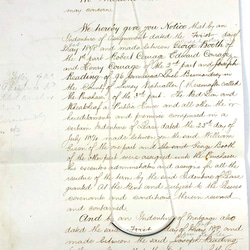 We hereby give you Notice that by an
Indenture of Assignment dated the First day
May 1898 and made between George Booth of
the 1st part Robert Courage Edward Courage
and Henry Courage of the 2nd part and Joseph
Reading of 96 Lane Bermondsey in
the County of Surrey hereinafter called
the Purchaser of the 3rd part The Red Lion and
Wheatsheaf a Public House and all other the
hereditaments and premises comprised in a
certain Indenture of Lease dated the 23rd day of
July 1891 made between the said William
of the one part and the said George Booth
of the other part were assigned unto the Purchaser
his executors administrators and assigns for all the
residue of the term by the said Indenture of Lease
granted At the Rent and subject to the Lessees
covenants and conditions therein reserved
and contained.
And by an Indenture of Mortgage also
dated the First day of May 1898 and
made between the said Joseph Reading